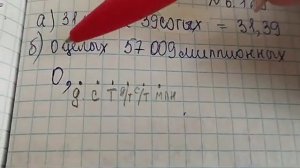 № 6.1
а) 31 39 сотых = 38,39
б) 0 целых 57009 миллионных
0,
д с т д/т с/т млн